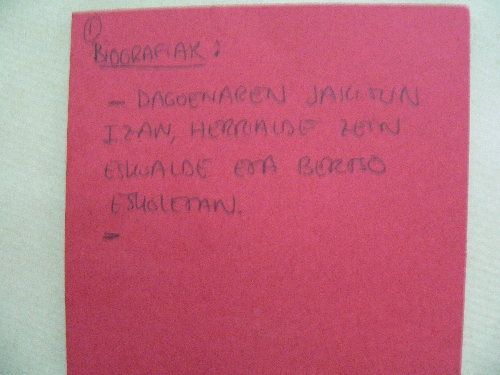 ①
BIOGRAFIAK:
- DAGOENAREN JAKITUN
IZAN, HERRIALDE ZEIN
ESKUALDE ETA BERTSO
ESKOLETAN.
-